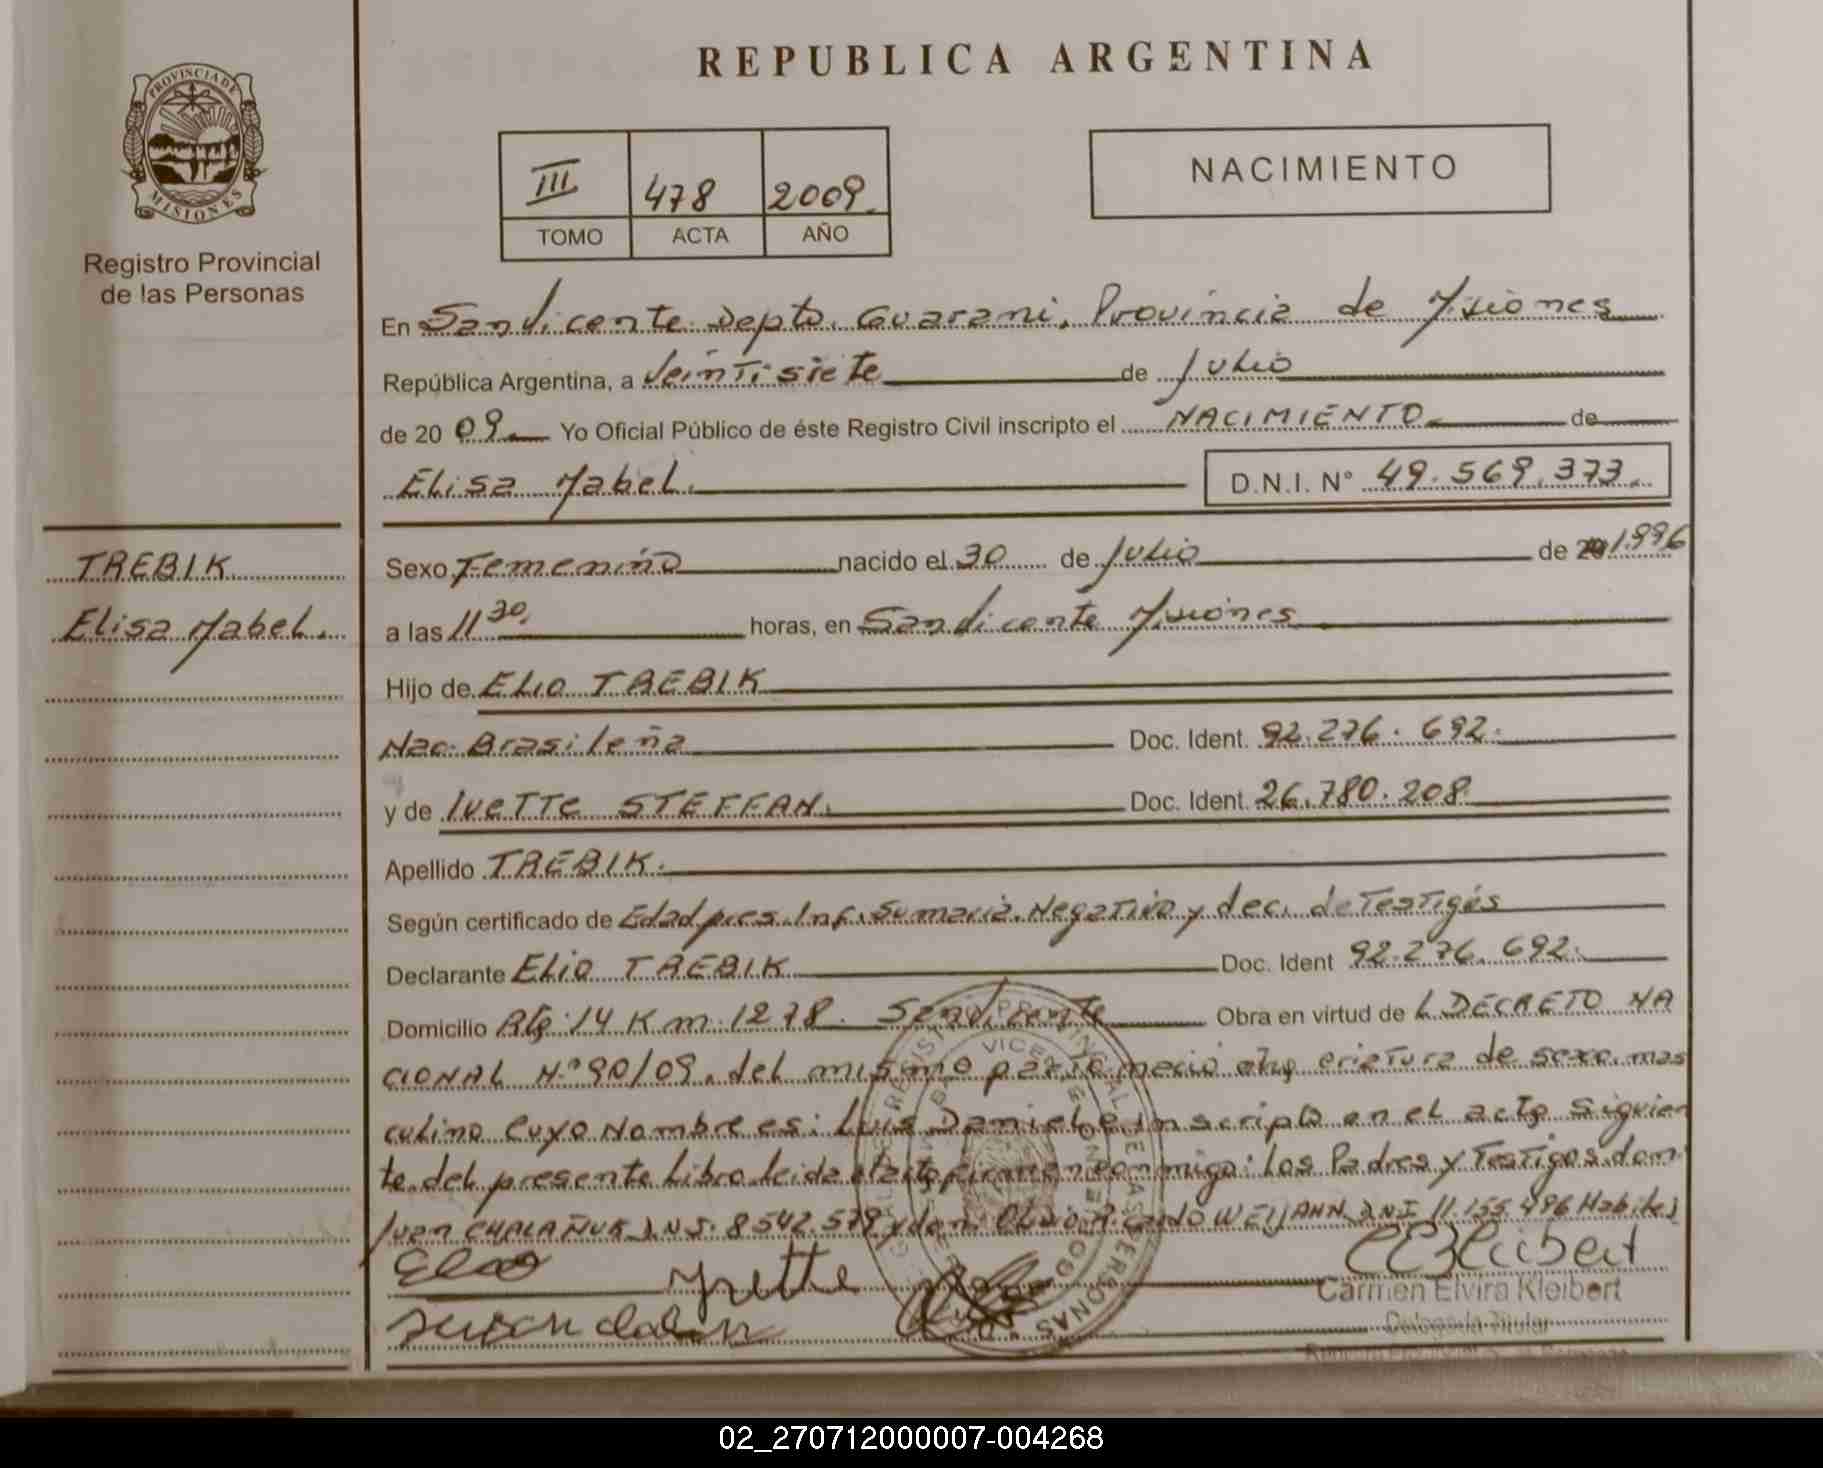 REPUBLICA ARGENTINA
PROVINCIA DE MISIONES
Registro Provincial
de las Personas
III 478 2009
TOMO ACTA AÑO
NACIMIENTO
En San Vicente Depto. Guarani, Provincia de Misiones
República Argentina, a Veintisiete de Julio
de 20 09 Yo Oficial Público de éste Registro Civil inscripto el NACIMIENTO de
Elisa Mabel. D.N.I. N° 49.569.373.
TREBIK
Elisa Mabel.
Sexo Femenino nacido el 30 de Julio de 20 1.996
a las 11 30, horas, en San Vicente Misiones
Hijo de ELIO TREBIK
Nac. Brasileña Doc. Ident. 92.276.692.
y de IVETTE STEFFAN. Doc. Ident. 26.780.208
Apellido TREBIK.
Según certificado de Edad pres. Inf. Sumaria. Negativa y dec. de Testigos
Declarante ELIO TREBIK Doc. Ident 92.276.692.
Domicilio Km. 1278. San Vicente Obra en virtud de L DECRETO NA
CIONAL N° 90/09. del mismo parto nacio criatura de sexo mas
culino Cuyo Nombre es: Luis Daniel e inscripto en el acta siguien
te del presente Libro leida el acta firman conmigo: Los Padres y Testigos don
Juan 8.542.579 y don 11.155.496 Habiles
Elio Yvette
Carmen Elvira Kleibert
Delegada Titular
02_270712000007-004268